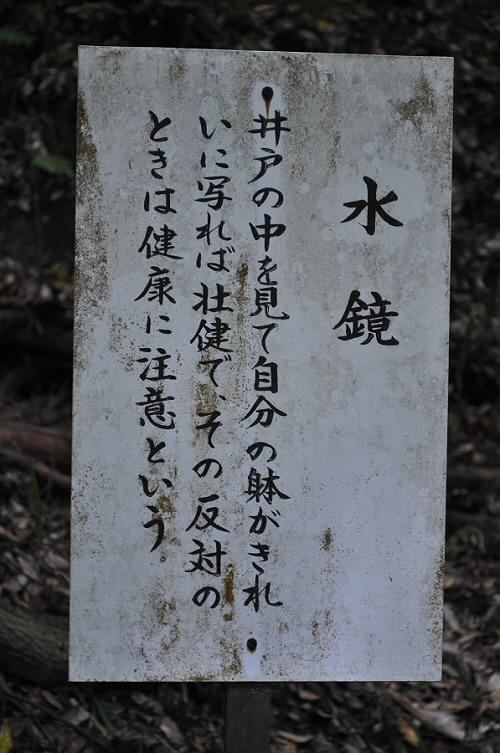 水鏡
井戸の中を見て自分の躰がきれ
いに写れば壮健で、その反対の
ときは健康に注意という。